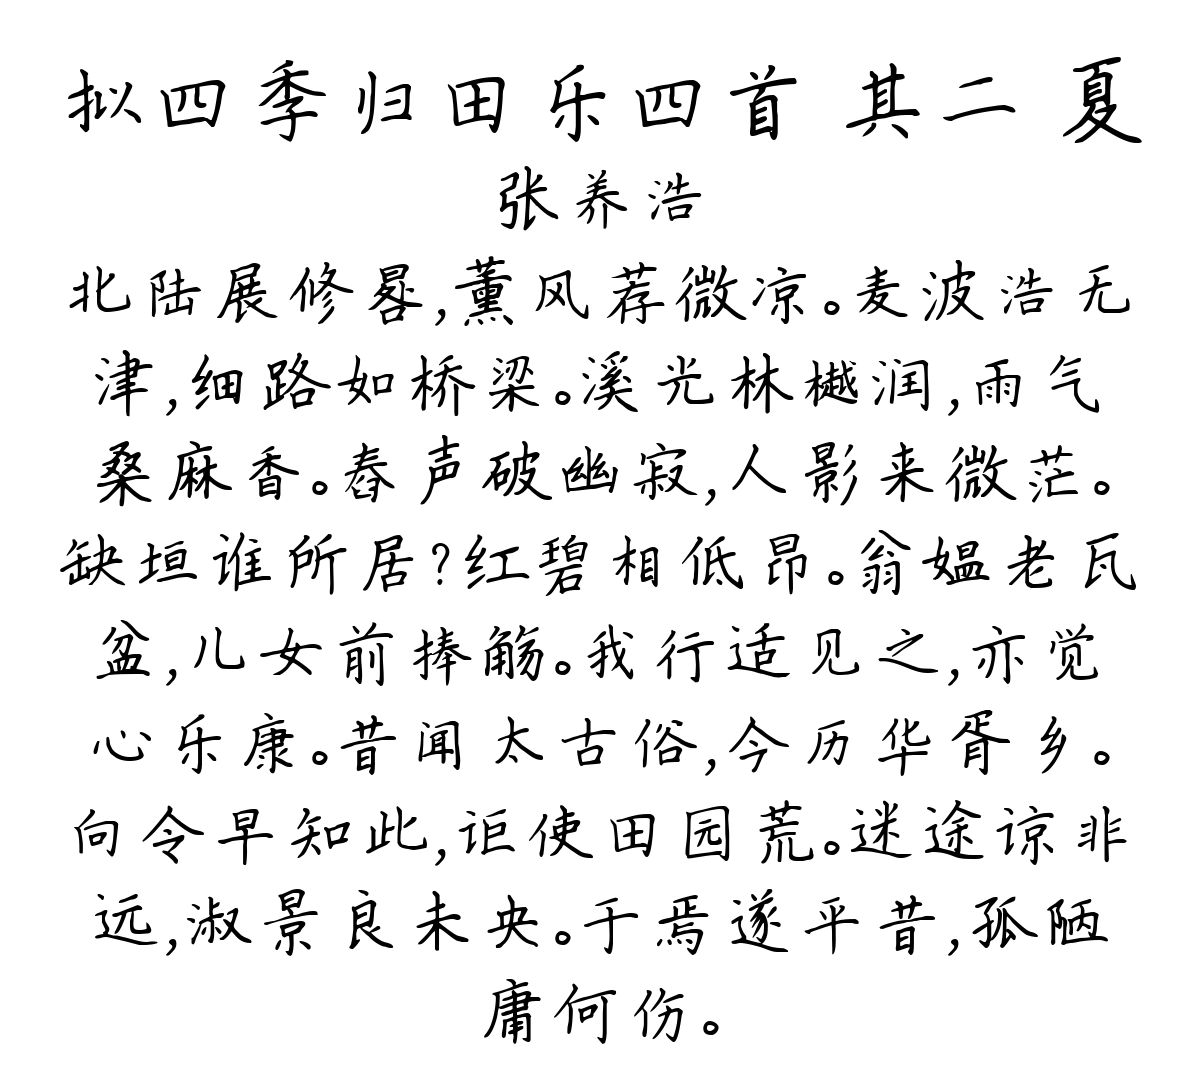 拟四季归田乐四首 其二 夏
张养浩
北陆展修晷,薰风荐微凉。麦波浩无
津,细路如桥梁。溪光林樾润,雨气
桑麻香。舂声破幽寂,人影来微茫。
缺垣谁所居?红碧相低昂。翁媪老瓦
盆,儿女前捧觞。我行适见之,亦觉
心乐康。昔闻太古俗,今历华胥乡。
向令早知此,讵使田园荒。迷途谅非
远,淑景良未央。于焉遂平昔,孤陋
庸何伤。